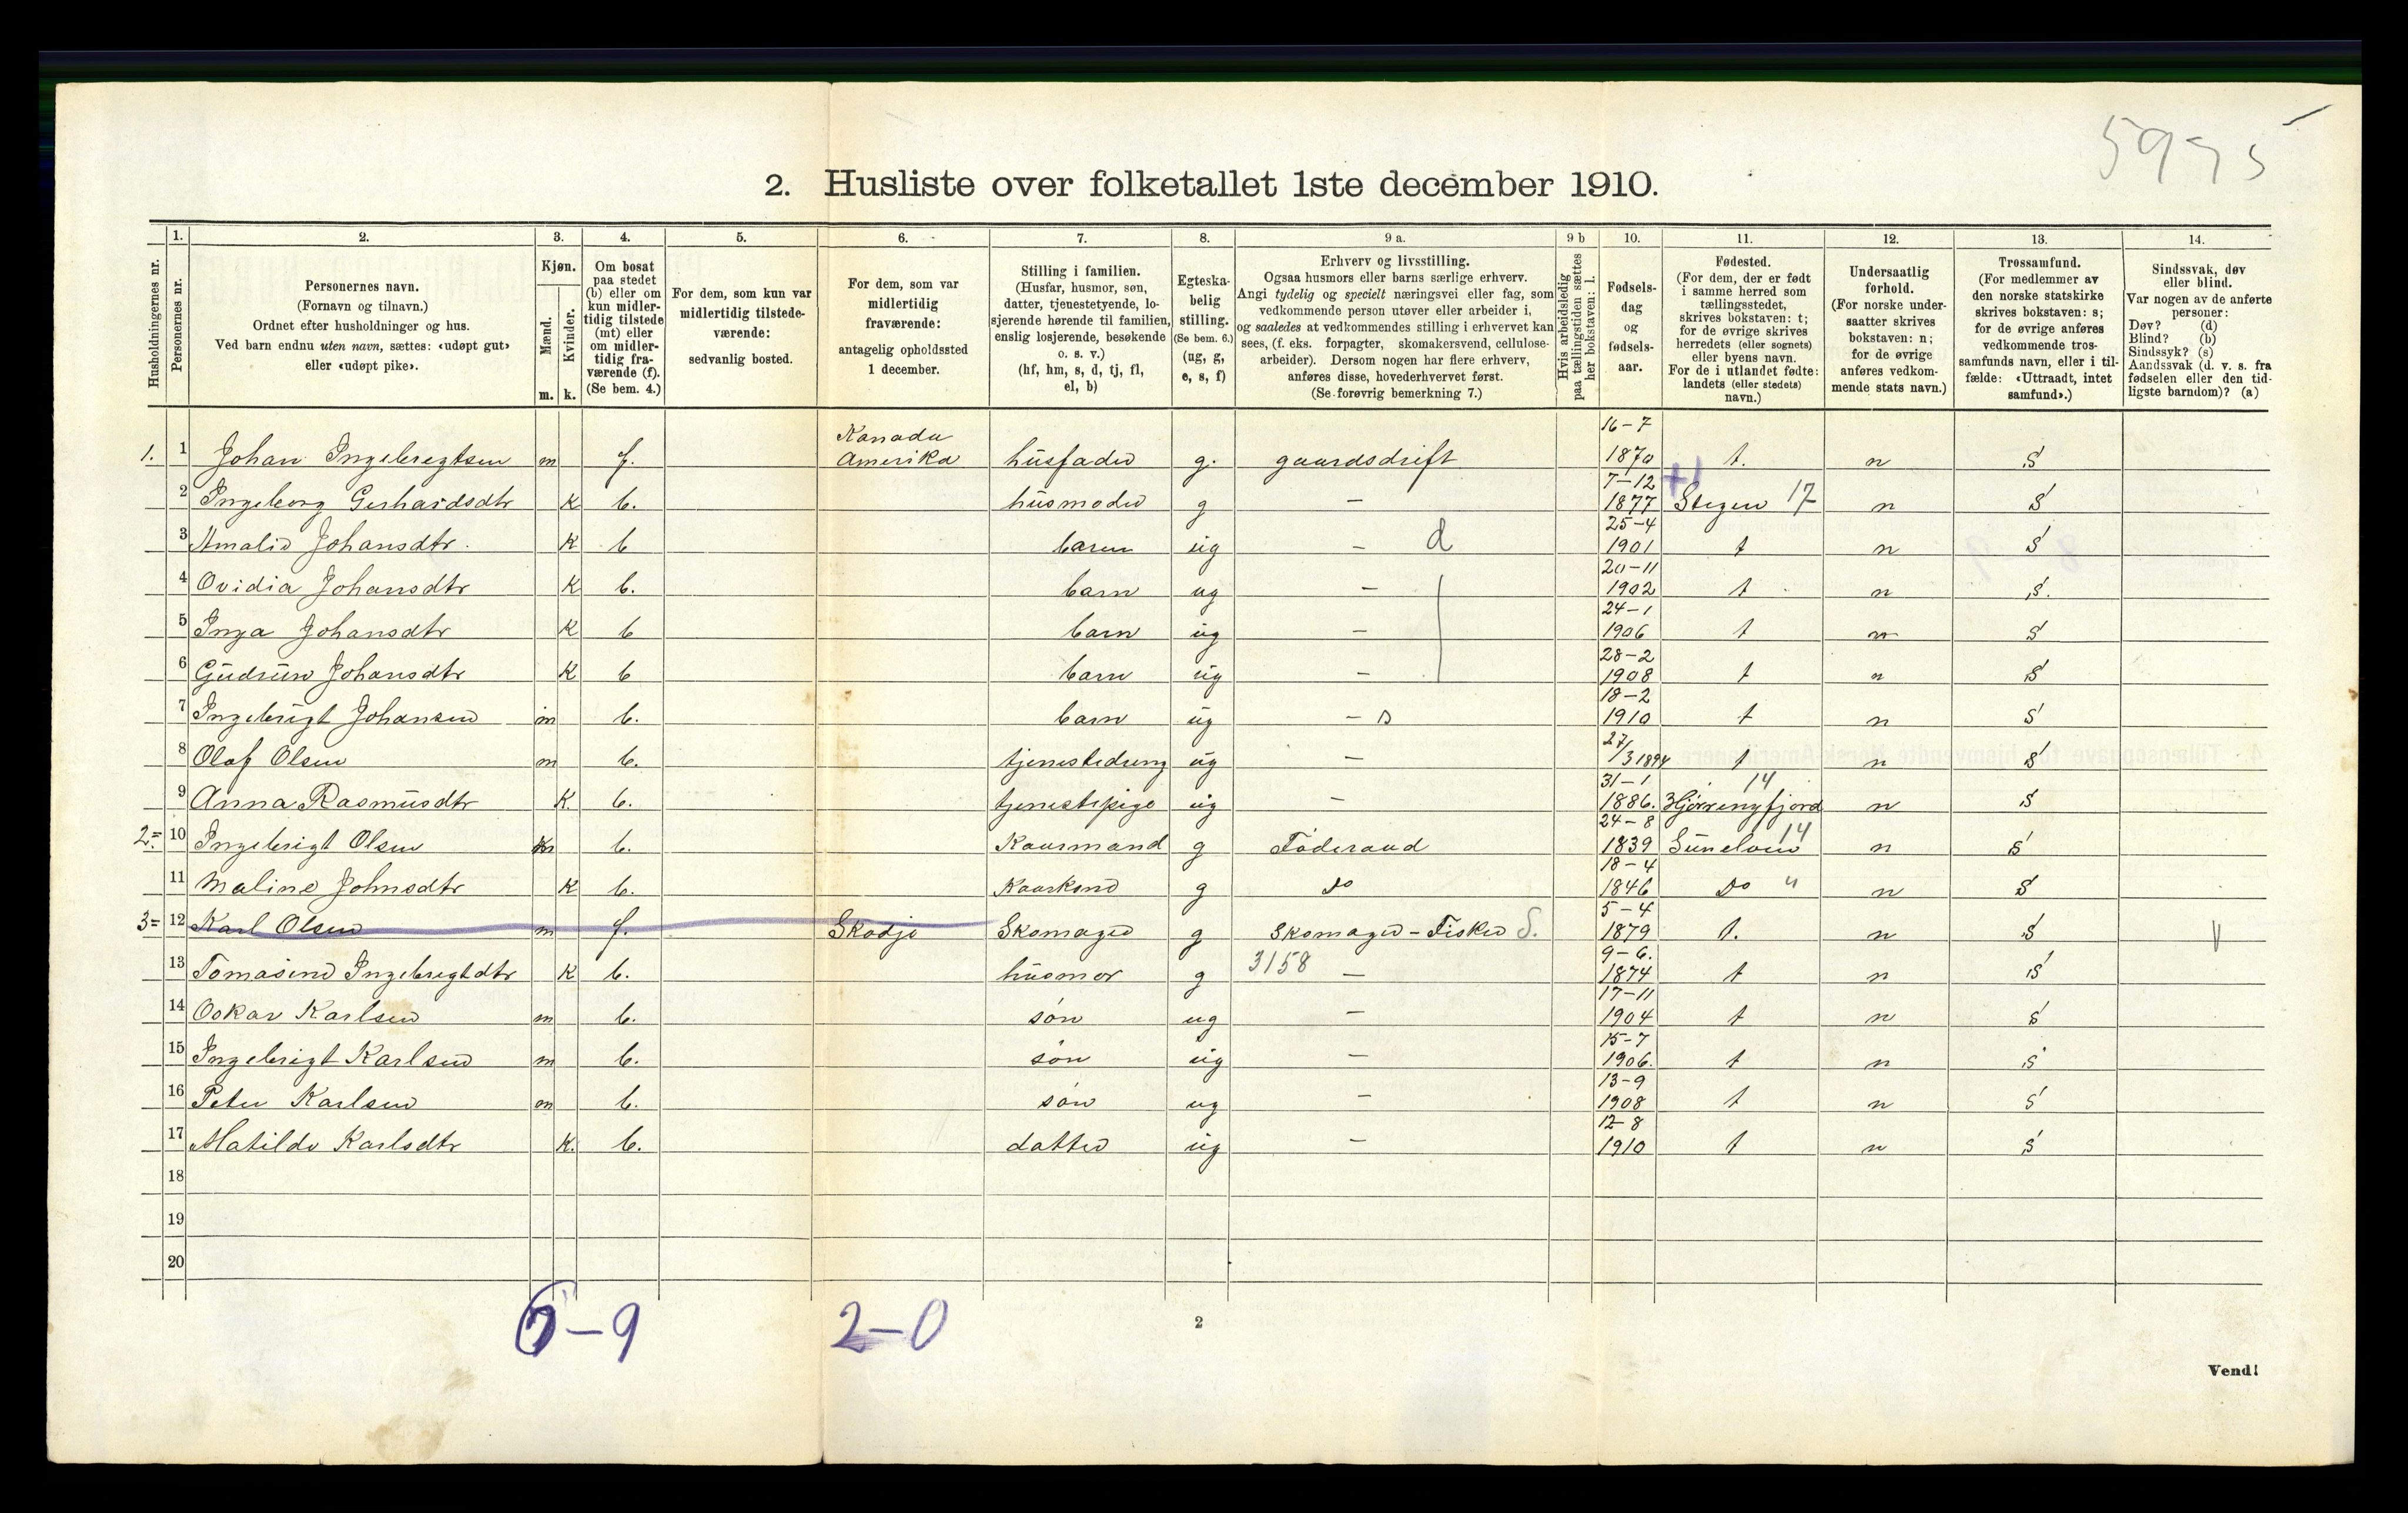 5975
2. Husliste over folketallet 1ste december 1910.
Husholdningernes nr.
1. Personernes nr.
2. Personernes navn.
(Fornavn og tilnavn.)
Ordnet efter husholdninger og hus.
Ved barn endnu uten navn, sættes: «udøpt gut»
eller «udøpt pike».
3. Kjøn.
Mænd. m.
Kvinder. k.
4. Om bosat
paa stedet
(b) eller om
kun midler-
tidig tilstede
(mt) eller
om midler-
tidig fra-
værende (f).
(Se bem. 4.)
5. For dem, som kun var
midlertidig tilstede-
værende:
sedvanlig bosted.
6. For dem, som var
midlertidig
fraværende:
antagelig opholdssted
1 december.
7. Stilling i familien.
(Husfar, husmor, søn,
datter, tjenestetyende, lo-
sjerende hørende til familien,
enslig losjerende, besøkende
o. s. v.)
(hf, hm, s, d, tj, fl,
el, b)
8. Egteska-
belig
stilling.
(Se bem. 6.)
(ug, g,
e, s, f)
9 a. Erhverv og livsstilling.
Ogsaa husmors eller barns særlige erhverv.
Angi tydelig og specielt næringsvei eller fag, som
vedkommende person utøver eller arbeider i,
og saaledes at vedkommendes stilling i erhvervet kan
sees, (f. eks. forpagter, skomakersvend, cellulose-
arbeider). Dersom nogen har flere erhverv,
anføres disse, hovederhvervet først.
(Se forøvrig bemerkning 7.)
9 b Hvis arbeidsledig
paa tællingstiden sættes
her bokstaven: l.
10. Fødsels-
dag
og
fødsels-
aar.
11. Fødested.
(For dem, der er født
i samme herred som
tællingsstedet,
skrives bokstaven: t;
for de øvrige skrives
herredets (eller sognets)
eller byens navn.
For de i utlandet fødte:
landets (eller stedets)
navn.)
12. Undersaatlig
forhold.
(For norske under-
saatter skrives
bokstaven: n;
for de øvrige
anføres vedkom-
mende stats navn.)
13. Trossamfund.
(For medlemmer av
den norske statskirke
skrives bokstaven: s;
for de øvrige anføres
vedkommende tros-
samfunds navn, eller i til-
fælde: «Uttraadt, intet
samfund».)
14. Sindssvak, døv
eller blind.
Var nogen av de anførte
personer:
Døv? (d)
Blind? (b)
Sindssyk? (s)
Aandssvak (d. v. s. fra
fødselen eller den tid-
ligste barndom)? (a)
1. 1 Johan Ingebregtsen m f. Kanada Amerika husfader g. gaardsdrift 16-7 1870 t. n S
2 Ingeborg Gerhardsdtr k b. husmoder g - 7-12 1877 +1 Stegen 17 n S
3 Amalie Johansdtr. k b barn ug - d 25-4 1901 t n S
4 Ovidia Johansdtr k b. barn ug - 20-11 1902 t n S.
5 Inga Johansdtr k b barn ug - 24-1 1906 t n S
6 Gudrun Johansdtr k b barn ug - 28-2 1908 t n S
7 Ingebrigt Johansen m b. barn ug - s 18-2 1910 t n S
8 Olaf Olsen m b. tjenestedreng ug - 27/3 1894 t n S
9 Anna Rasmusdtr k. b. tjenestepige ug - 31-1 1886. Hjørrengfjord 14 n S
2= 10 Ingebrigt Olsen m b. Kaarmand g Føderaad 24-8 1839 Sunelven 14 n S
11 Maline Johnsdtr k b. Kaarkone g Do 18-4 1846 Do " n S
3= 12 Karl Olsen m f. Skodje Skomager g Skomager - Fisker S. 5-4 1879 t. n S
13 Tomasine Ingebregtdtr k b. husmor g 3158 - 9-6. 1874 t n S
14 Oskar Karlsen m b. søn ug - 17-11 1904 t n S
15 Ingebrigt Karlsen m b. søn ug - 15-7 1906. t n S
16 Peter Karlsen m b. søn ug - 13-9 1908 t n S
17 Matilde Karlsdtr k. b. datter ug - 12-8 1910 t n S
18
19
20
7-9 2-0
2
Vend!